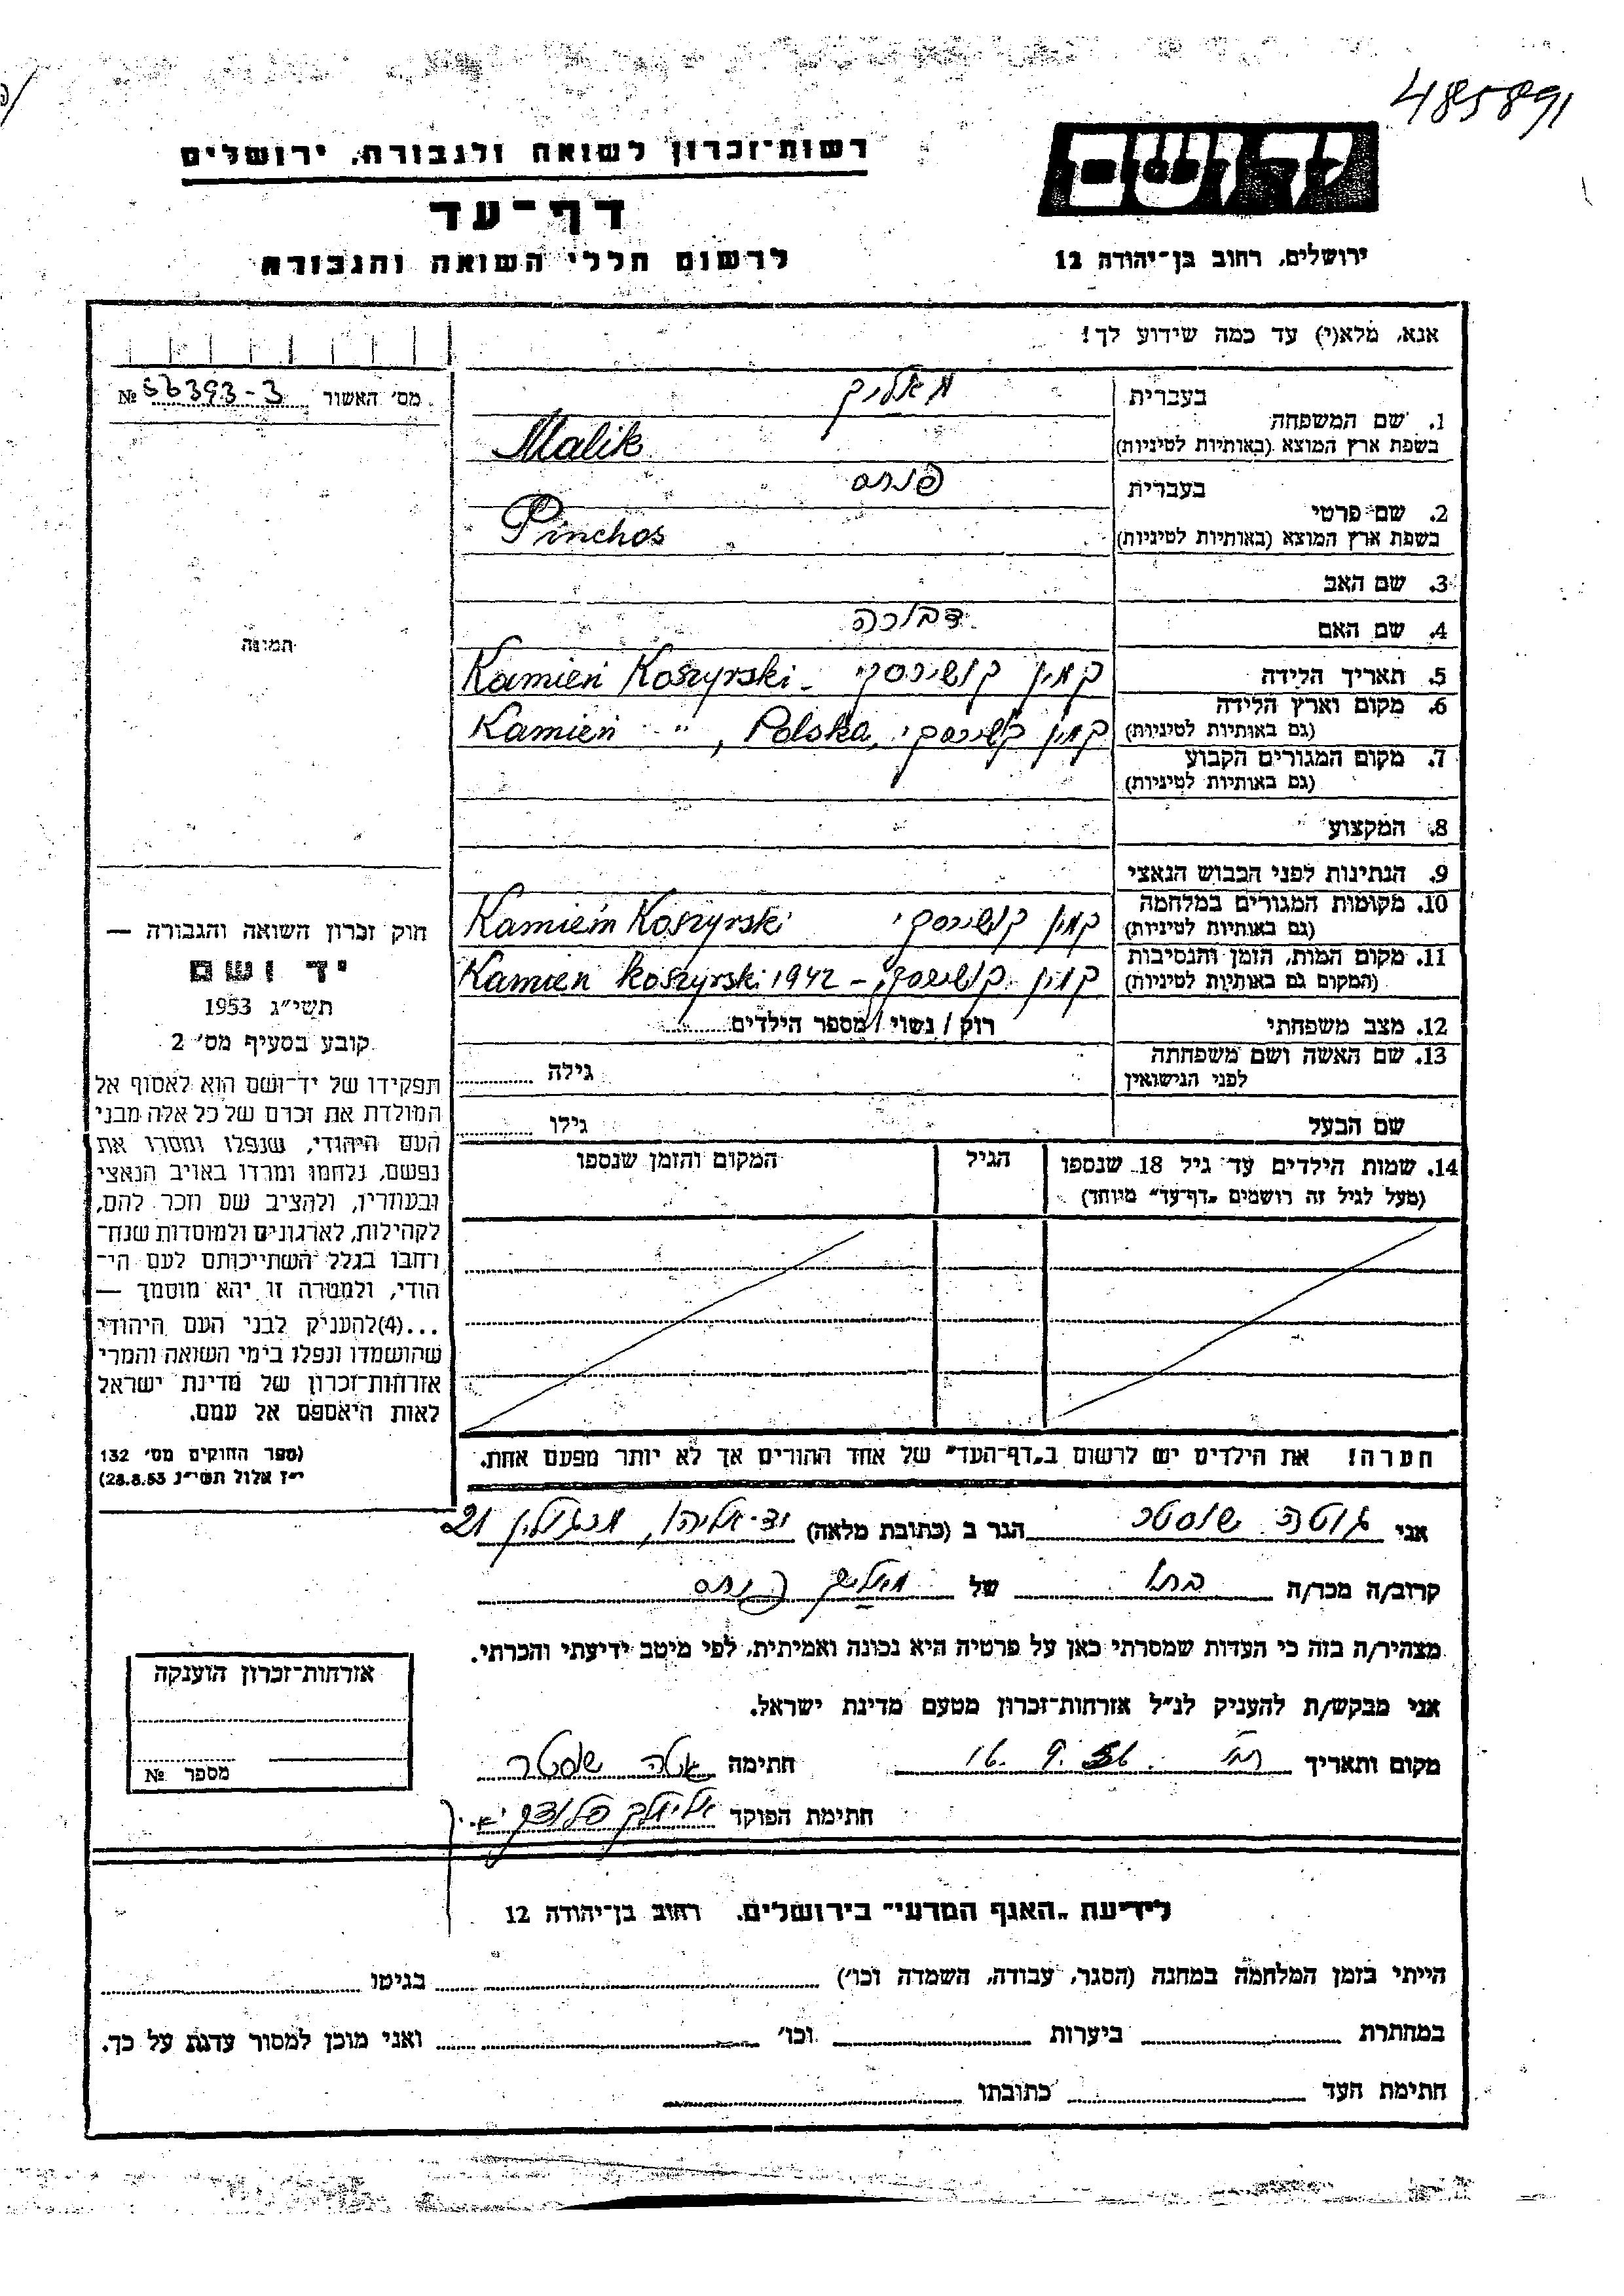 485891
רשות־זכרון לשואה ולגבורה, ירושלים
דף־עד
לרשום חללי השואה והגבורה
יד ושם
ירושלים, רחוב בן־יהודה 12
אנא, מלא(י) עד כמה שידוע לך!
מס׳ האשור № 56393-3
בעברית מאליק
1. שם המשפחה
בשפת ארץ המוצא (באותיות לטיניות) Malik
בעברית פנחס
2. שם פרטי
בשפת ארץ המוצא (באותיות לטיניות) Pinchos
3. שם האב
4. שם האם
5. תאריך הלידה קמין קושירסקי - Kamień Koszyrski
6. מקום וארץ הלידה
(גם באותיות לטיניות) קמין קושירסקי, Kamień ״, Polska
7. מקום המגורים הקבוע
(גם באותיות לטיניות)
8. המקצוע
9. הנתינות לפני הכבוש הנאצי
10. מקומות המגורים במלחמה
(גם באותיות לטיניות) קמין קושירסקי Kamień Koszyrski
11. מקום המות, הזמן והנסיבות
(המקום גם באותיות לטיניות) קמין קושירסקי - Kamien Koszyrski 1942
12. מצב משפחתי רוק / נשוי / מספר הילדים
13. שם האשה ושם משפחתה
לפני הנישואין גילה
שם הבעל גילו
14. שמות הילדים עד גיל 18 שנספו הגיל המקום והזמן שנספו
(מעל לגיל זה רושמים „דף־עד״ מיוחד)
הערה! את הילדים יש לרשום ב„דף־העד״ של אחד ההורים אך לא יותר מפעם אחת.
תמונה
חוק זכרון השואה והגבורה —
יד ושם
תשי״ג 1953
קובע בסעיף מס׳ 2
תפקידו של יד־ושם הוא לאסוף אל
המולדת את זכרם של כל אלה מבני
העם היהודי, שנפלו ומסרו את
נפשם, נלחמו ומרדו באויב הנאצי
ובעוזריו, ולהציב שם וזכר להם,
לקהילות, לארגונים ולמוסדות שנח־
רבו בגלל השתייכותם לעם הי־
הודי, ולמטרה זו יהא מוסמך —
...(4)להעניק לבני העם היהודי
שהושמדו ונפלו בימי השואה והמרי
אזרחות־זכרון של מדינת ישראל
לאות היאספם אל עמם.
(ספר החוקים מס׳ 132
י״ז אלול תשי״ג 28.8.53)
אני גוטה שוסטר הגר ב (כתובת מלאה) יד־אליהו, 21
קרוב/ה מכר/ה בתו של מאליק פנחס
מצהיר/ה בזה כי העדות שמסרתי כאן על פרטיה היא נכונה ואמיתית, לפי מיטב ידיעתי והכרתי.
אני מבקש/ת להעניק לנ״ל אזרחות־זכרון מטעם מדינת ישראל.
מקום ותאריך 16. 9. 56 חתימה שוסטר
חתימת הפוקד
אזרחות־זכרון הוענקה
מספר №
לידיעת „האגף המדעי״ בירושלים, רחוב בן־יהודה 12
הייתי בזמן המלחמה במחנה (הסגר, עבודה, השמדה וכו׳) בגיטו
במחתרת ביערות וכו׳ ואני מוכן למסור עדות על כך.
חתימת העד כתובתו